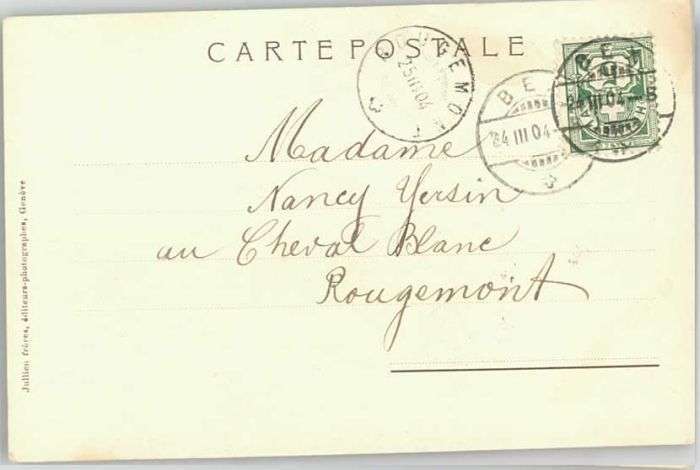 CARTE POSTALE
ROUGEMONT
25 III 04
BEX
24 III 04
BEX
24 III 04 - 8
Madame
Nancy Yersin
au Cheval Blanc
Rougemont
Jullien frères, éditeurs-photographes, Genève